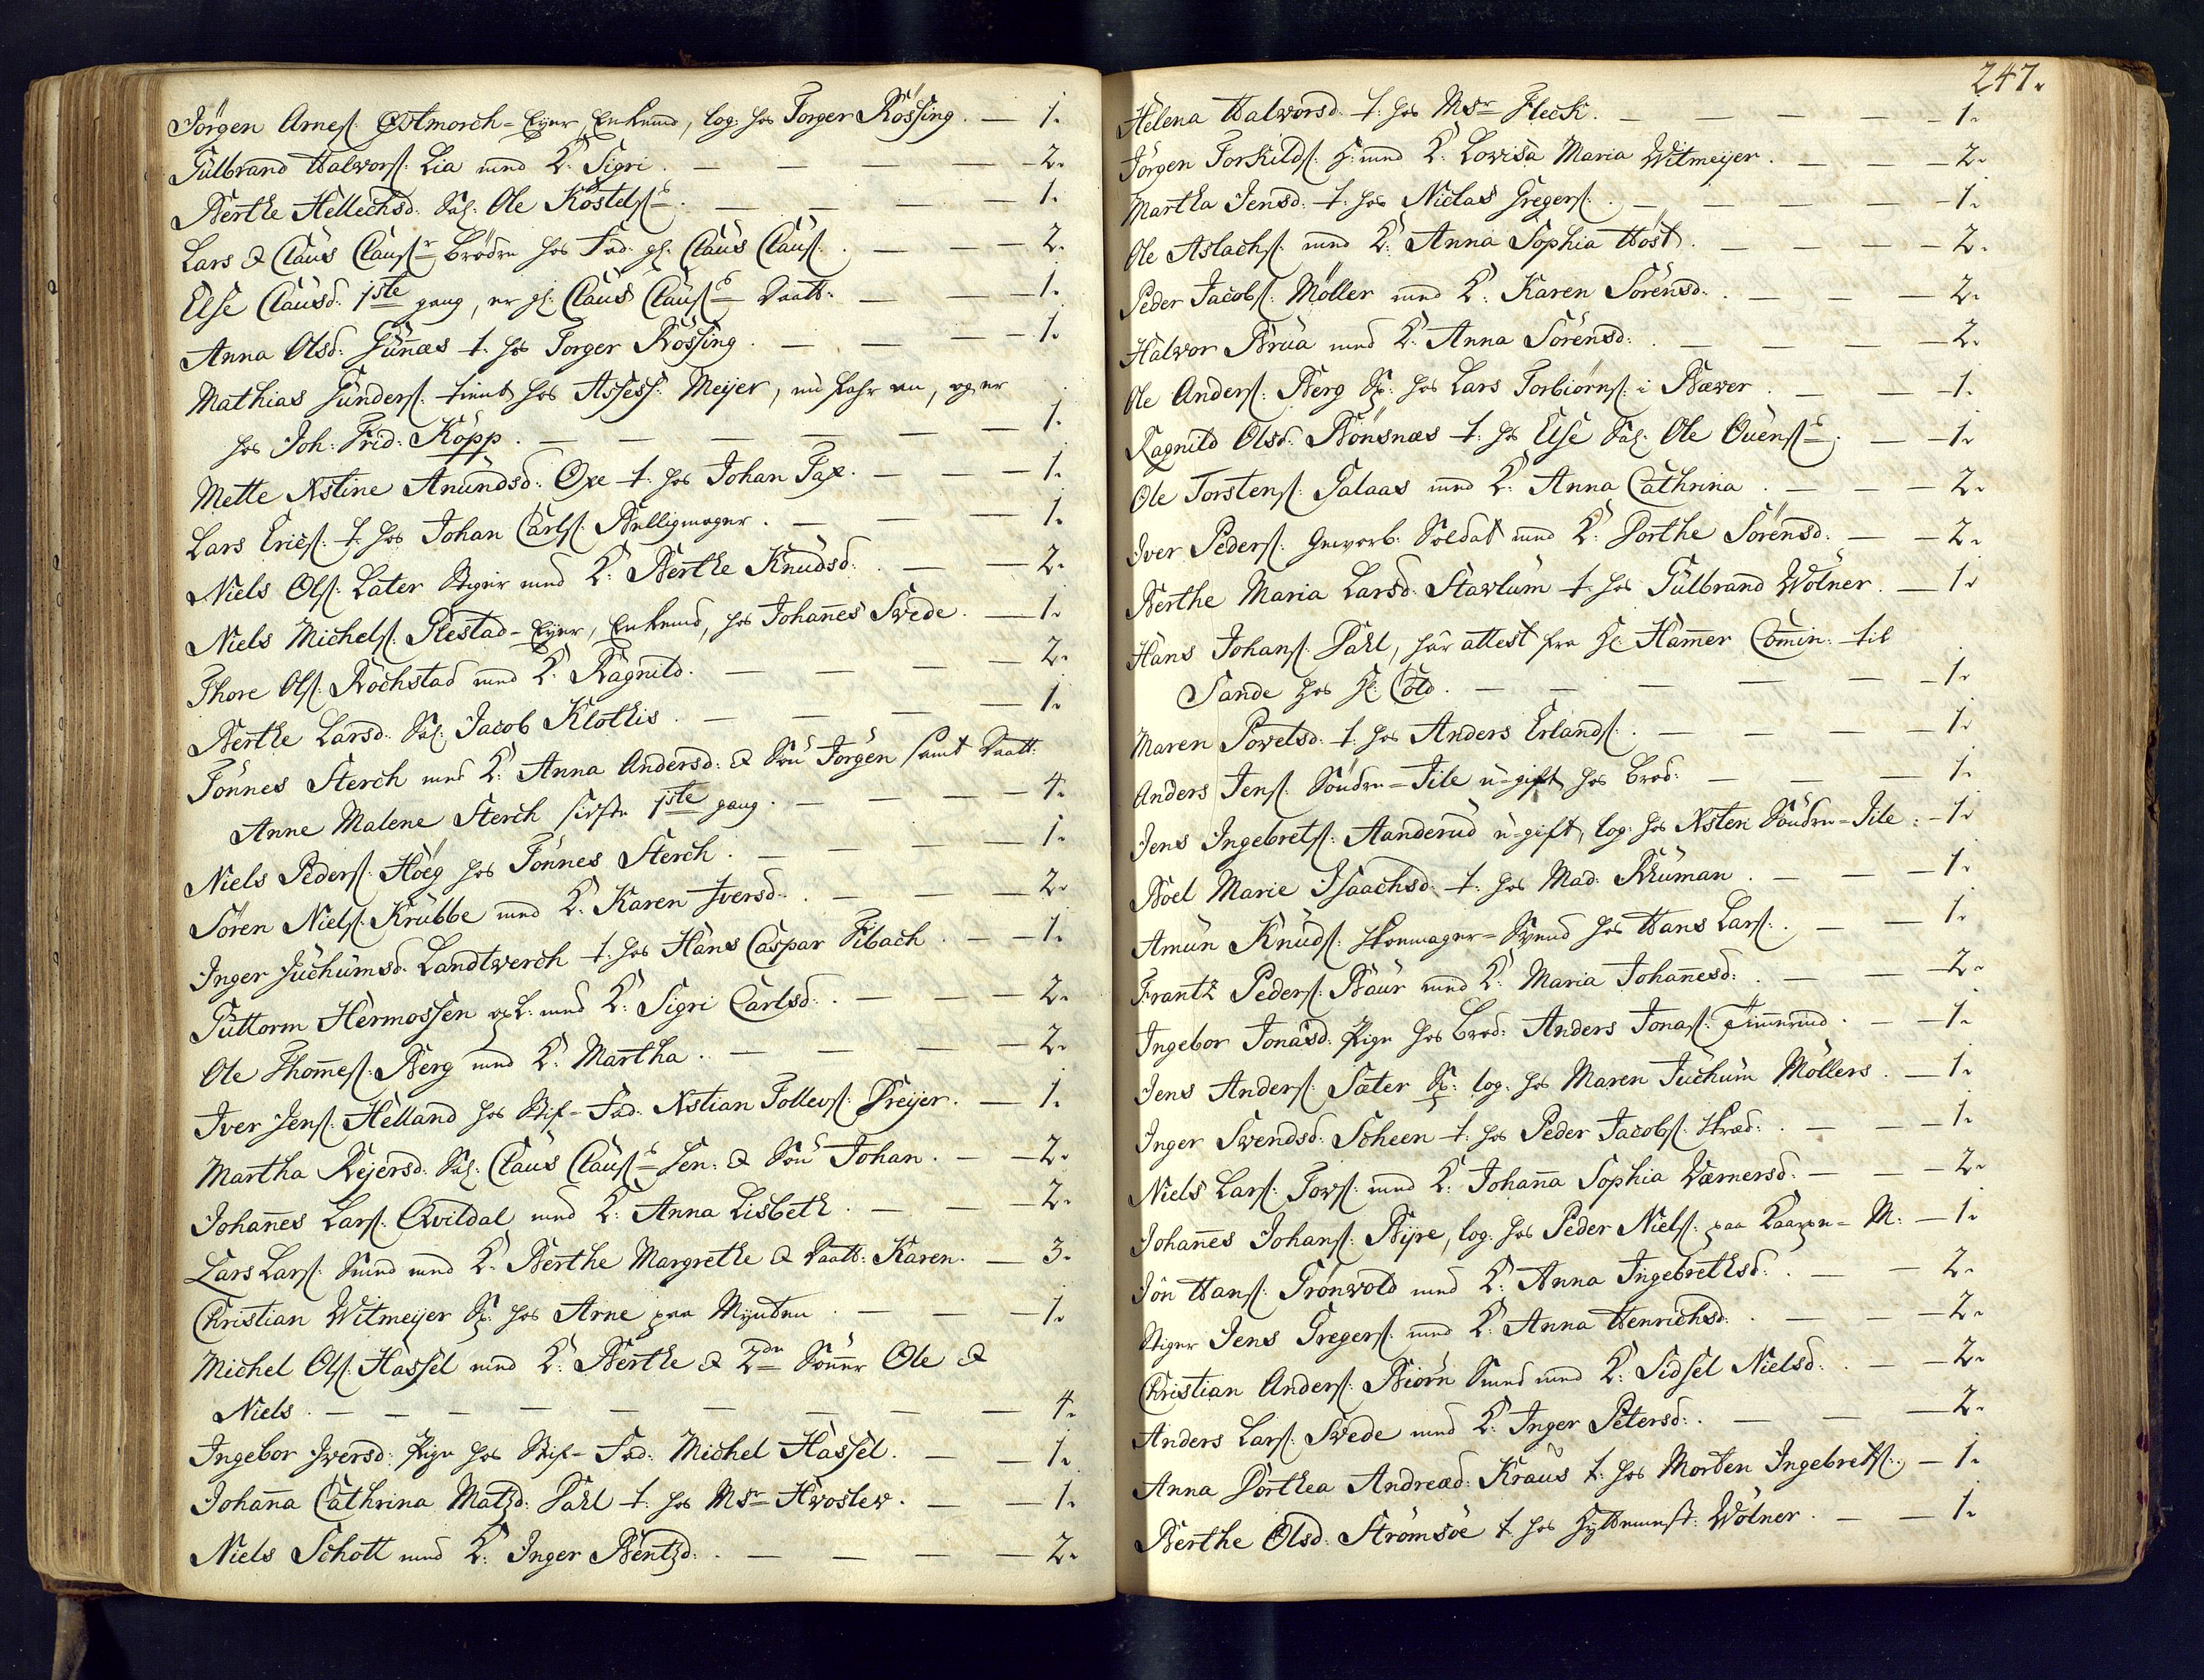 Jörgen Arnes: Østmorch-Eyer, Enkemd, log: hos Torger Rössing. — 1.
Gulbrand Halvors: Lia med K: Sigri. — 2.
Berthe Hellechsd: Sal: Ole Kostels — 1.
Lars & Claus Claus Brödre hos Fad: gl: Claus Claus: — 2.
Else Clausd: 1ste gang, er gl: Claus Claus Daatt: — 1.
Anna Olsd: Gunnæs t: hos Torger Rössing. — 1.
Mathias Gunders: tient hos Assess: Meijer, og er
hos Joh: Frid: Köpp. — 1.
Mette Xstine Amundsd: Oxe t: hos Johan Fax. — 1.
Lars Erics: t: hos Johan Carls: Belligmager. — 1.
Niels Ols: Later Stiger med K: Berthe Knudsd: — 2.
Niels Michels: Plestad-Eyer, Enkemd, hos Johannes Svede. — 1.
Thore Ols: Rochstad med K: Ragnild. — 2.
Berthe Larsd: Sal: Jacob Klothis. — 1.
Tönnes Sterch med K: Anna Andersd: & Sön Jörgen samt Daatt:
Anne Malene Sterch sidste 1ste gang. — 4.
Niels Peders: Höeg hos Tönnes Sterch. — 1.
Sören Niels: Krubbe med K: Karen Iversd: — 2.
Inger Juchumsd: Landtverch t: hos Hans Caspar Fibach. — 1.
Guttorm Hermossen med K: Sigri Carlsd: — 2.
Ole Thommes: Berg med K: Martha. — 2.
Iver Jens: Helland hos Stif-Fad: Xstian Tollevs: Dreijer. — 1.
Martha Reijersd: Sal: Claus Claus Sen: & Sön Johan. — 2.
Johannes Lars: Qvildal med K: Anna Lisbeth. — 2.
Lars Lars: Smed med K: Berthe Margrethe & Daatt: Karen. — 3.
Christian Witmeijer Sp: hos Arne paa Mynten — 1.
Michel Ols: Hassel med K: Berthe & 2de Sönner Ole &
Niels. — 4.
Ingebor Iversd: Pige hos Stif-Fad: Michel Hassel. — 1.
Johanna Cathrina Matzd: Dahl t: hos Msr Hvoslev. — 1.
Niels Schott med K: Inger Bentzd: — 2.
247.
Helena Halvorsd: t: hos Msr Fleck. — 1.
Jörgen Torkilds: H: med K: Lovisa Maria Witmeijer. — 2.
Martha Jensd: t: hos Niclas Gregers: — 1.
Ole Aslachs: med K: Anna Sophia Høst. — 2.
Peder Jacobs: Möller med K: Karen Sörensd: — 2.
Halvor Brua med K: Anna Sörensd: — 2.
Ole Anders: Berg Sp: hos Lars Torbiörns: i Bæver. — 1.
Ragnild Olsd: Bönsnæs t: hos Else Sal: Ole Ouens — 1.
Ole Torstens: Galaas med K: Anna Cathrina. — 2.
Iver Peders: Gevorb: Soldat med K: Dorthe Sörensd: — 2.
Berthe Maria Larsd: Stavlum t: hos Gulbrand Wölner. — 1.
Hans Johans: Dahl, har attest fra Hr Hammer Comin: til
Sande hos Hr: Cold. — 1.
Maren Povelsd: t: hos Anders Erlands: — 1.
Anders Jens: Söndre-Jile u-gift hos Brod: — 1.
Jens Ingebrets: Aanderud u-gift, log: hos Xsten Söndre-Jile: — 1.
Boel Marie Isaachsd: t: hos Mad: Bruman. — 1.
Amun Knuds: Skoemager-Svend hos Hans Lars: — 1.
Frantz Peders: Baur med K: Maria Johannesd: — 2.
Ingebor Jonasd: Pige hos Brod: Anders Jonas: Timmermd. — 1.
Jens Anders: Sater Sp: log: hos Maren Juchum Möllers. — 1.
Inger Svendsd: Scheen t: hos Peder Jacobs: Skræd: — 1.
Niels Lars: Tovs: med K: Johanna Sophia Wærnersd: — 2.
Johannes Johans: Bye, log: hos Peder Niels: paa M: — 1.
Jon Hans: Grönvold med K: Anna Ingebrethsd: — 2.
Stiger Jens Gregers: med K: Anna Henrichsd: — 2.
Christian Anders: Biörn Smed med K: Sidsel Nielsd: — 2.
Anders Lars: Svede med K: Inger Petersd: — 2.
Anna Dorthea Andread: Kraus t: hos Morten Ingebrets: — 1.
Berthe Olsd: Strömsöe t: hos Hyttemest: Wölner. — 1.